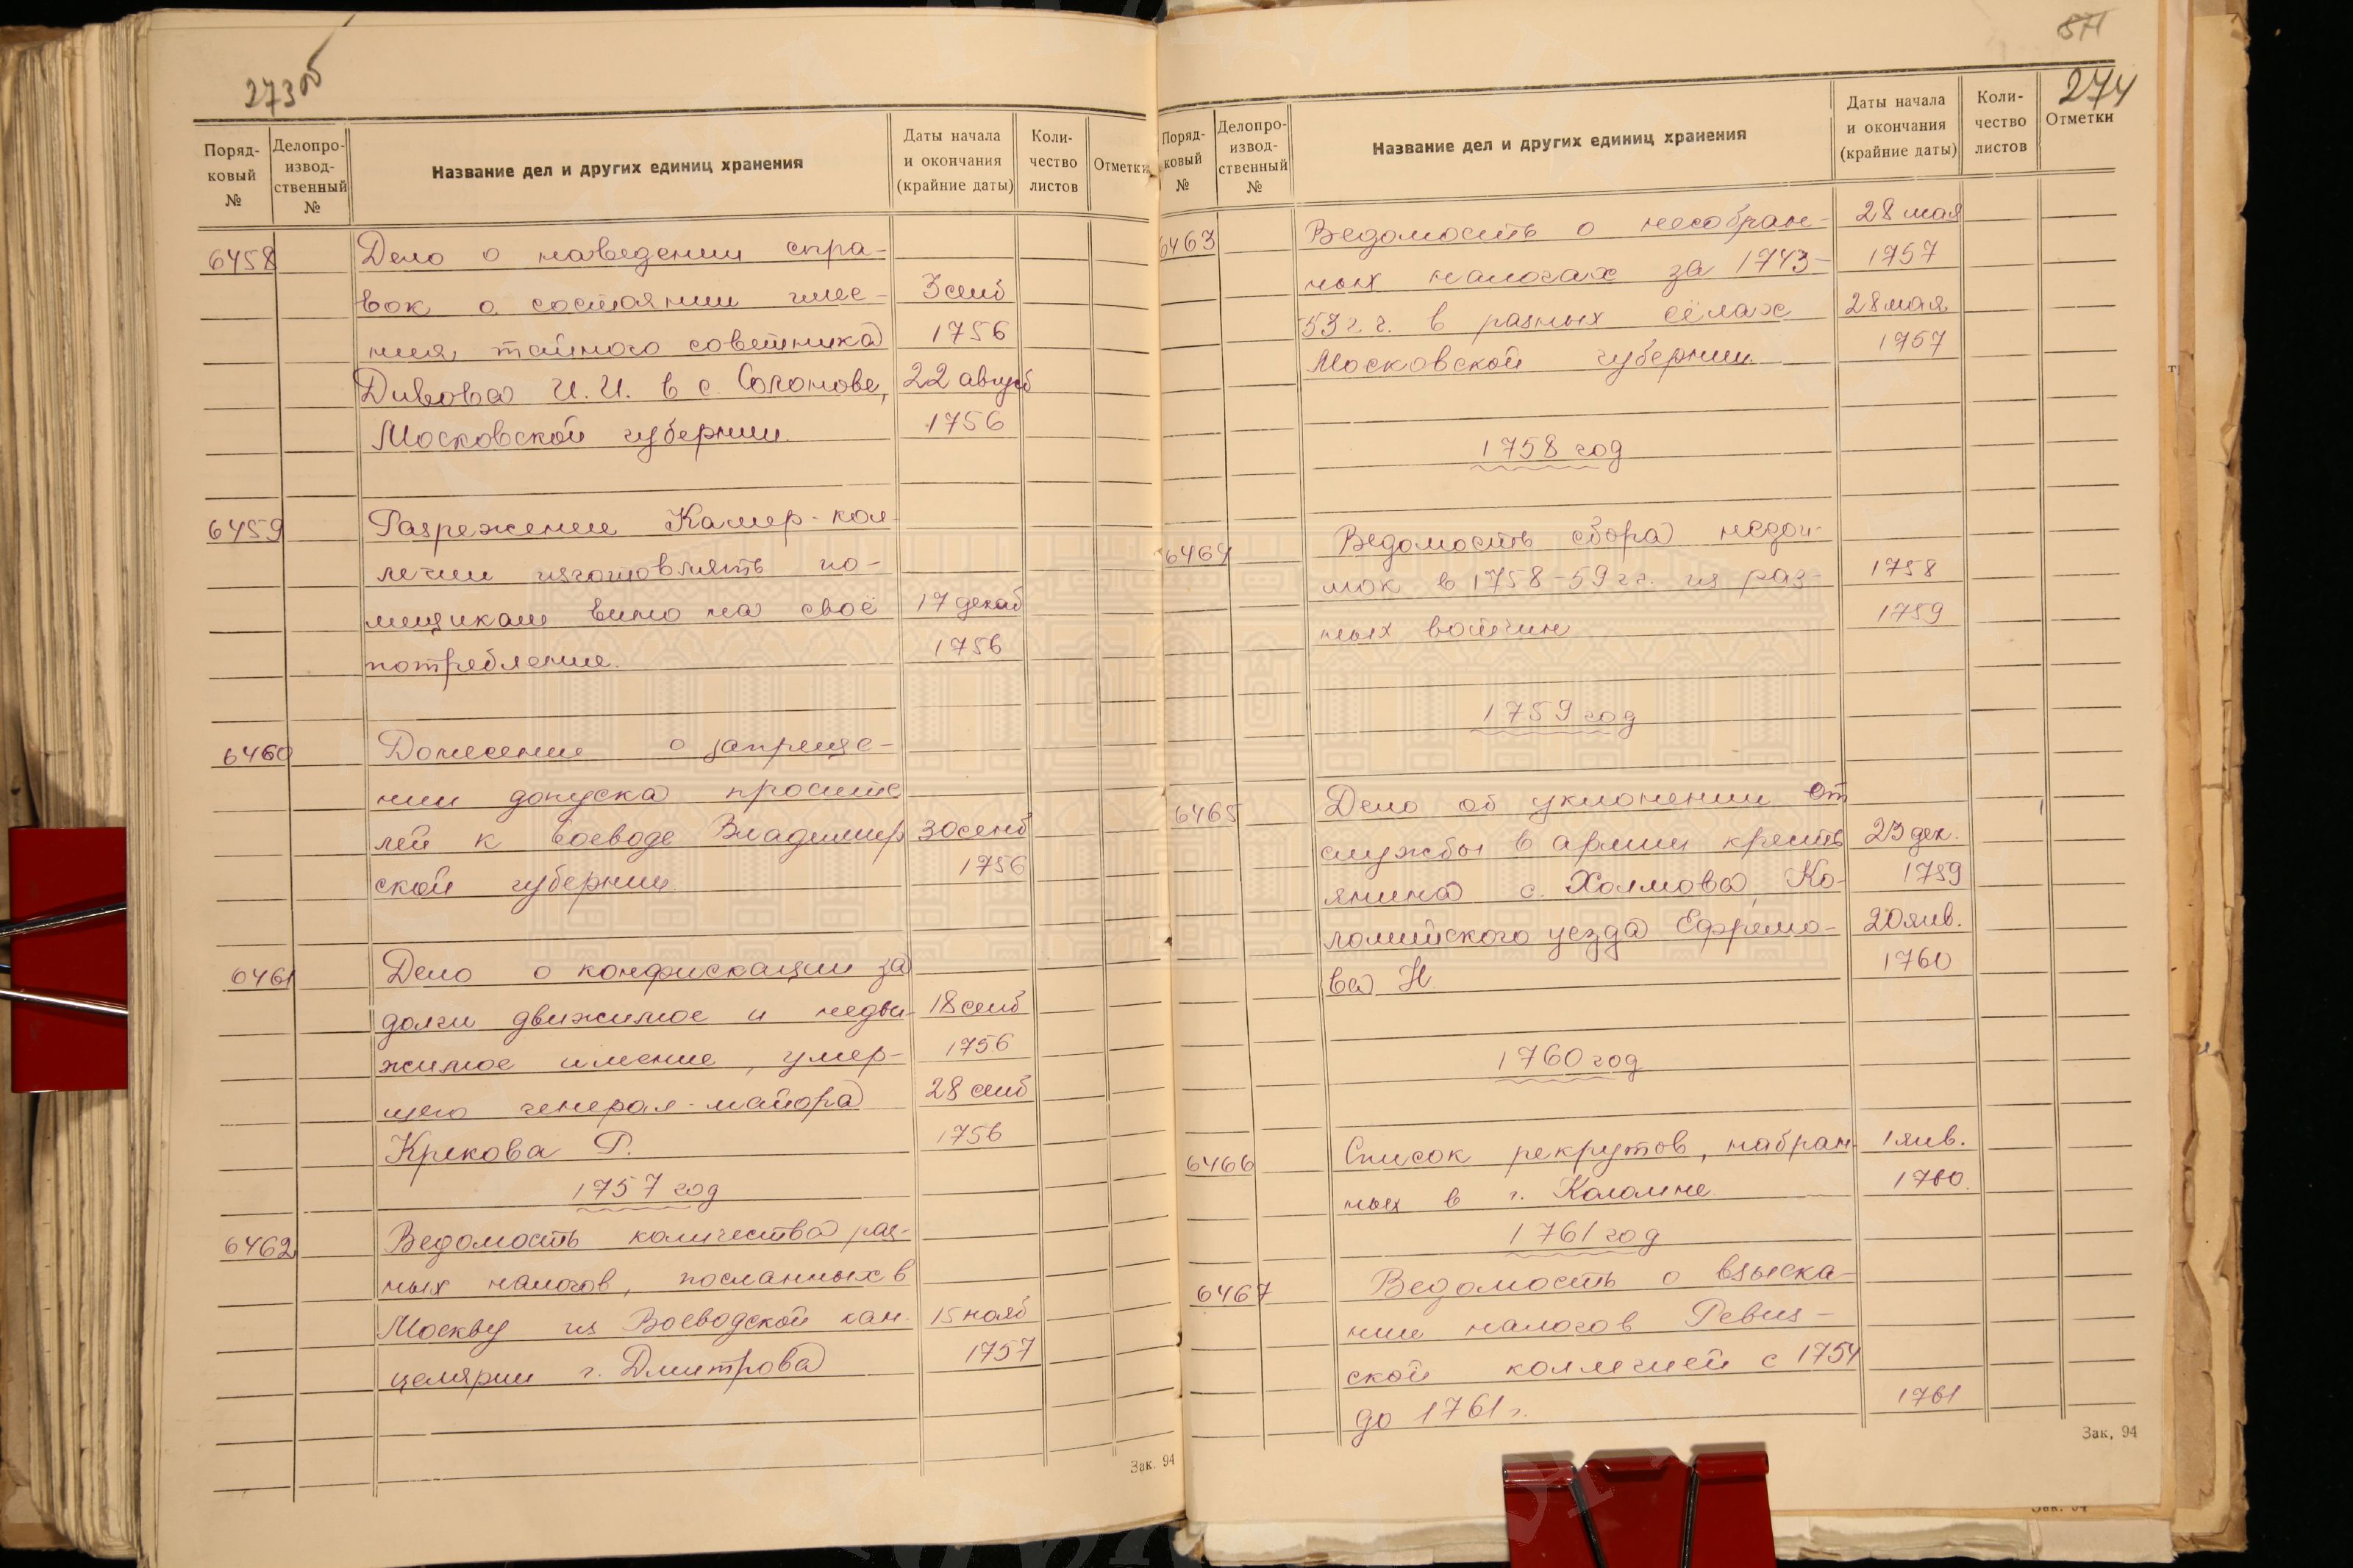 273об
Поряд-
ковый
№
Делопро-
извод-
ственный
№
Название дел и других единиц хранения
Даты начала
и окончания
(крайние даты)
Коли-
чество
листов
Отметки
6458
Дело о наведении спра-
вок о состоянии име-
3 сент
ния, тайного советника
1756
Дивова И. И. в с. Соломове,
22 август
Московской губернии.
1756
6459
Разрежение Камер-кол-
легии изготовлять по-
мещикам вино на своё
17 декаб
потребление.
1756
6460
Донесение о запреще-
нии допуска просите
лей к воеводе Владимир
30 сент
ской губернии.
1756
6461
Дело о конфискации за
долги движимое и недви-
18 сент
жимое имение, умер-
1756
щего генерал-майора
28 сент
Крекова Р.
1756
1757 год
6462
Ведомость количества раз-
ных налогов, посланных в
Москву из Воеводской кан-
15 нояб
целярии г. Дмитрова
1757
Зак. 94
571
274
Поряд-
ковый
№
Делопро-
извод-
ственный
№
Название дел и других единиц хранения
Даты начала
и окончания
(крайние даты)
Коли-
чество
листов
Отметки
6463
Ведомость о несобран-
28 мая
ных налогах за 1743-
1757
53 г.г. в разных сёлах
28 мая
Московской губернии.
1757
1758 год
6464
Ведомость сбора недои-
мок в 1758-59 гг. из раз-
1758
ных вотчин
1759
1759 год
6465
Дело об уклонении от
службы в армии кресть
23 дек.
янина с. Холмова, Ко-
1759
ломийского уезда Ефремо-
20 янв.
ва Н
1760
1760 год
6466
Список рекрутов, набран-
1 янв.
ных в г. Коломне
1760.
1761 год
6467
Ведомость о взыска-
нии налогов Ревиз-
ской коллегией с 1754
до 1761 г.
1761
Зак, 94